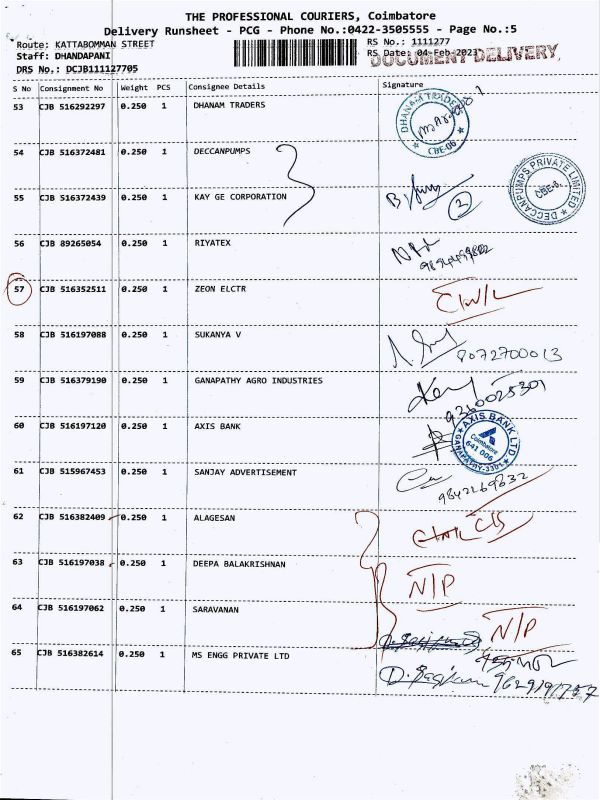 THE PROFESSIONAL COURIERS, Coimbatore
Delivery Runsheet - PCG - Phone No.:0422-3505555 - Page No.:5
Route: KATTABOMMAN STREET
RS No.: 1111277
Staff: DHANDAPANI
RS Date: 04-Feb-2023
DOCUMENT DELIVERY
DRS No.: DCJB111127705
S No Consignment No Weight PCS Consignee Details Signature
53 CJB 516292297 0.250 1 DHANAM TRADERS
DHANAM TRADERS CBE-06
54 CJB 516372481 0.250 1 DECCANPUMPS
DECCANPUMPS PRIVATE LIMITED CBE-6.
55 CJB 516372439 0.250 1 KAY GE CORPORATION
2
56 CJB 89265054 0.250 1 RIYATEX
57 CJB 516352511 0.250 1 ZEON ELCTR
58 CJB 516197088 0.250 1 SUKANYA V
9072700013
59 CJB 516379190 0.250 1 GANAPATHY AGRO INDUSTRIES
9360025301
60 CJB 516197120 0.250 1 AXIS BANK
AXIS BANK LTD Coimbatore 641 006 GANAPATHY-3301
61 CJB 515967453 0.250 1 SANJAY ADVERTISEMENT
9842269832
62 CJB 516382409 0.250 1 ALAGESAN
63 CJB 516197038 0.250 1 DEEPA BALAKRISHNAN
N/P
64 CJB 516197062 0.250 1 SARAVANAN
N/P
65 CJB 516382614 0.250 1 MS ENGG PRIVATE LTD